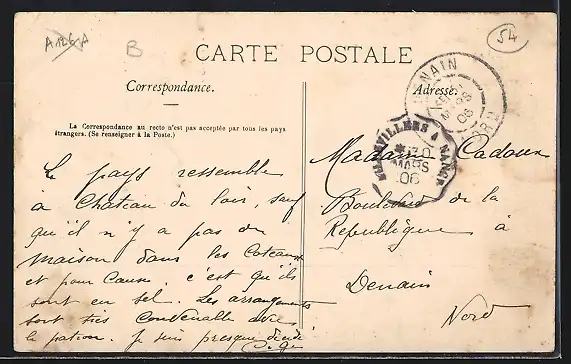 A126A
B
54
CARTE POSTALE
Correspondance.
Adresse.
La Correspondance au recto n'est pas acceptée par tous les pays
étrangers. (Se renseigner à la Poste.)
DENAIN
NORD
MARS
06
A NANCY
MARS
06
Le pays ressemble
à Chateau du loir, sauf
qu'il n'y a pas de
maison dans les Coteaux
et pour cause c'est qu'ils
sont en sel. Les arrangements
sont très convenable avec
le patron. Je suis presque décidé
Madame Cadoux
Boulevard de la
République à
Denain
Nord